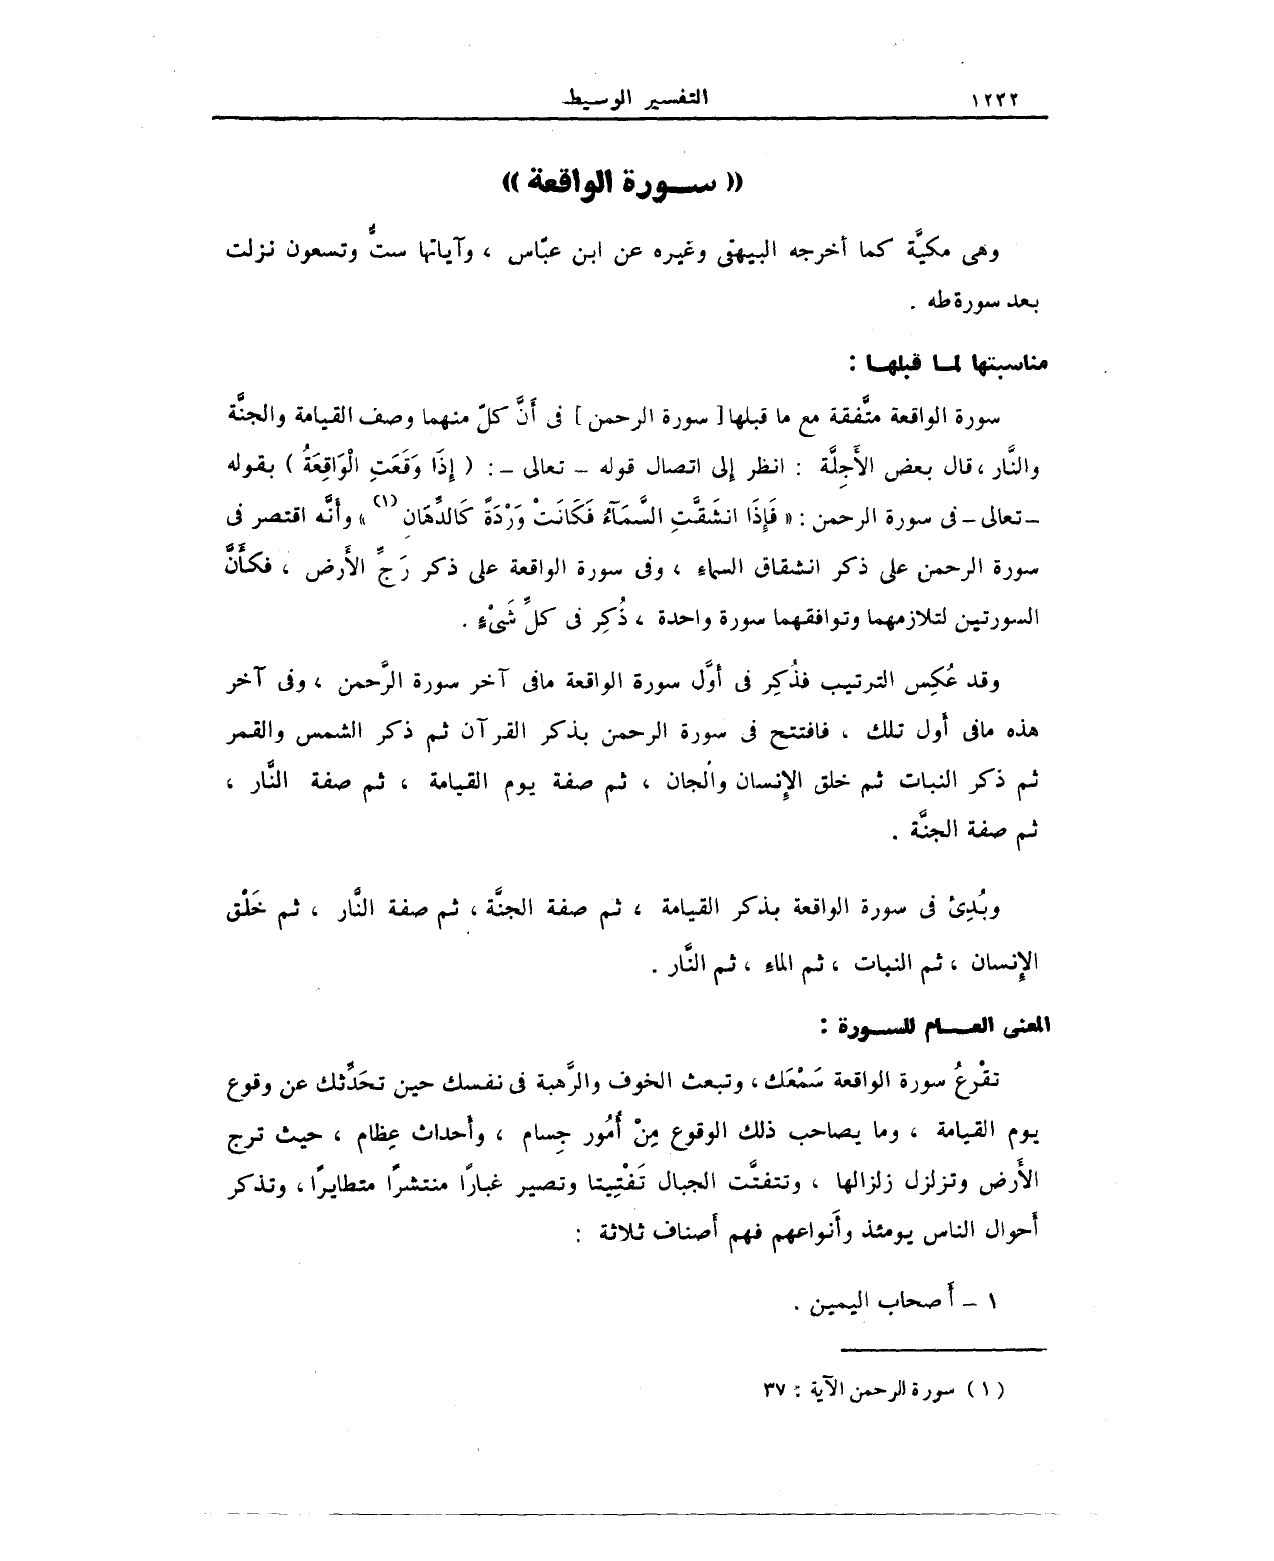 ١٢٣٢
التفسير الوسيط
« سـورة الواقعة »
وهى مكيَّة كما أخرجه البيهقى وغيره عن ابن عبّاس ، وآياتها ستٌّ وتسعون نزلت
بعد سورة طه .
مناسبتها لمـا قبلهـا :
سورة الواقعة متَّفقة مع ما قبلها [ سورة الرحمن ] فى أَنَّ كلّ منهما وصف القيامة والجنَّة
والنَّار ، قال بعض الأَجِلَّة : انظر إلى اتصال قوله – تعالى – : ( إِذَا وَقَعَتِ الْوَاقِعَةُ ) بقوله
– تعالى – فى سورة الرحمن : « فَإِذَا انشَقَّتِ السَّمَآءُ فَكَانَتْ وَرْدَةً كَالدِّهَانِ (١) » وأَنَّه اقتصر فى
سورة الرحمن على ذكر انشقاق السماء ، وفى سورة الواقعة على ذكر رَجِّ الأَرض ، فكأَنَّ
السورتين لتلازمهما وتوافقهما سورة واحدة ، ذُكِر فى كلِّ شَىْءٍ .
وقد عُكِس الترتيب فذُكِر فى أَوَّل سورة الواقعة مافى آخر سورة الرَّحمن ، وفى آخر
هذه مافى أَول تلك ، فافتتح فى سورة الرحمن بذكر القرآن ثم ذكر الشمس والقمر
ثم ذكر النبات ثم خلق الإِنسان والجان ، ثم صفة يوم القيامة ، ثم صفة النَّار ،
ثم صفة الجنَّة .
وبُدِئَ فى سورة الواقعة بذكر القيامة ، ثم صفة الجنَّة ، ثم صفة النَّار ، ثم خَلْق
الإِنسان ، ثم النبات ، ثم الماء ، ثم النَّار .
المعنى العـــام للســورة :
تقْرعُ سورة الواقعة سَمْعَك ، وتبعث الخوف والرَّهبة فى نفسك حين تحَدِّثك عن وقوع
يوم القيامة ، وما يصاحب ذلك الوقوع مِنْ أُمُور جِسام ، وأَحداث عِظام ، حيث ترج
الأَرض وتزلزل زلزالها ، وتتفتَّت الجبال تَفْتِيتا وتصير غبارًا منتشرًا متطايرًا ، وتذكر
أَحوال الناس يومئذ وأَنواعهم فهم أَصناف ثلاثة :
١ – أَصحاب اليمين .
( ١ ) سورة الرحمن الآية : ٣٧